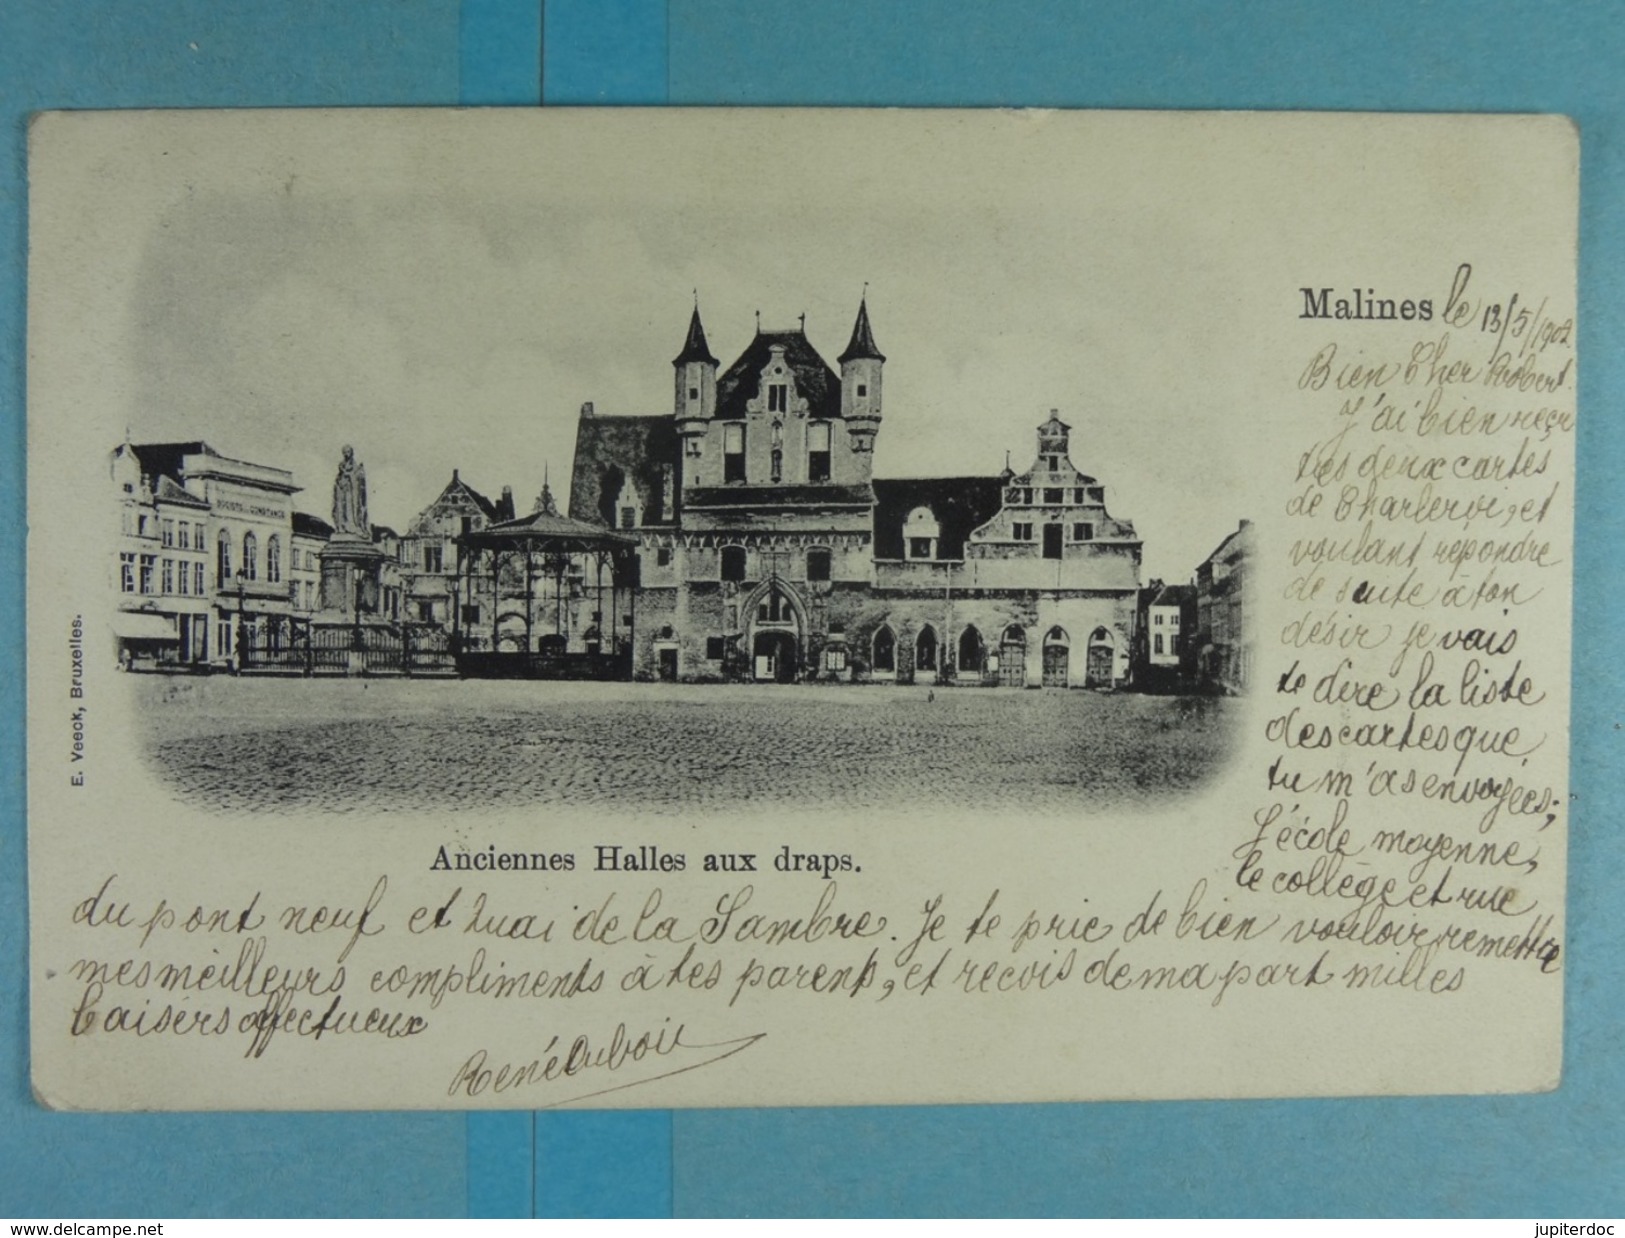 Malines le 13/5/1902
Bien Cher Robert.
J'ai bien reçu
tes deux cartes
de Charleroi, et
voulant répondre
de suite à ton
désir je vais
te dire la liste
des cartes que
tu m'as envoyées;
l'école moyenne,
le collège et rue
du pont neuf et Quai de la Sambre. Je te prie de bien vouloir remettre
mes meilleurs compliments à tes parents, et reçois de ma part milles
baisers affectueux
René Dubois
Anciennes Halles aux draps.
E. Veeck, Bruxelles.
www.delcampe.net
jupiterdoc